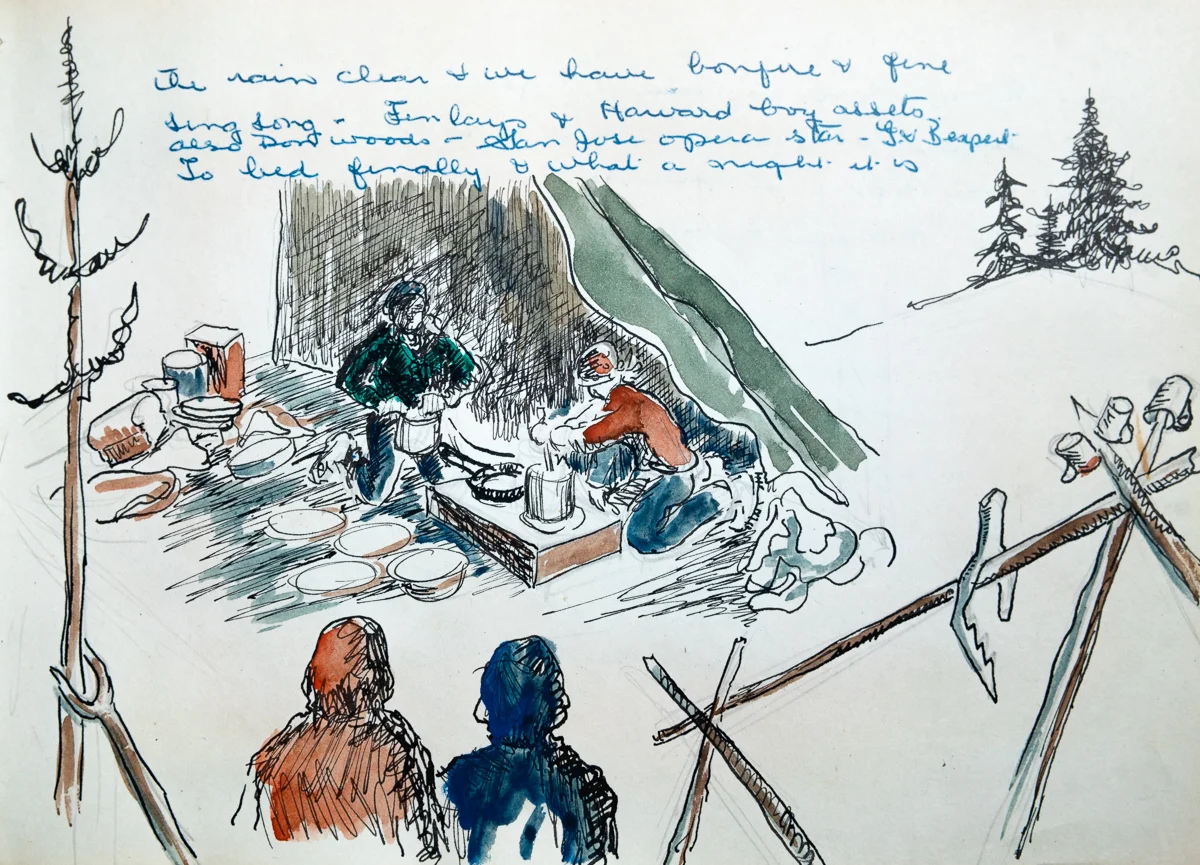 The rain clear & we have bonfire & fine
sing song - Finlays & Harvard boy assets,
also Don Woods - San Jose opera star -
To bed finally & what a night it is